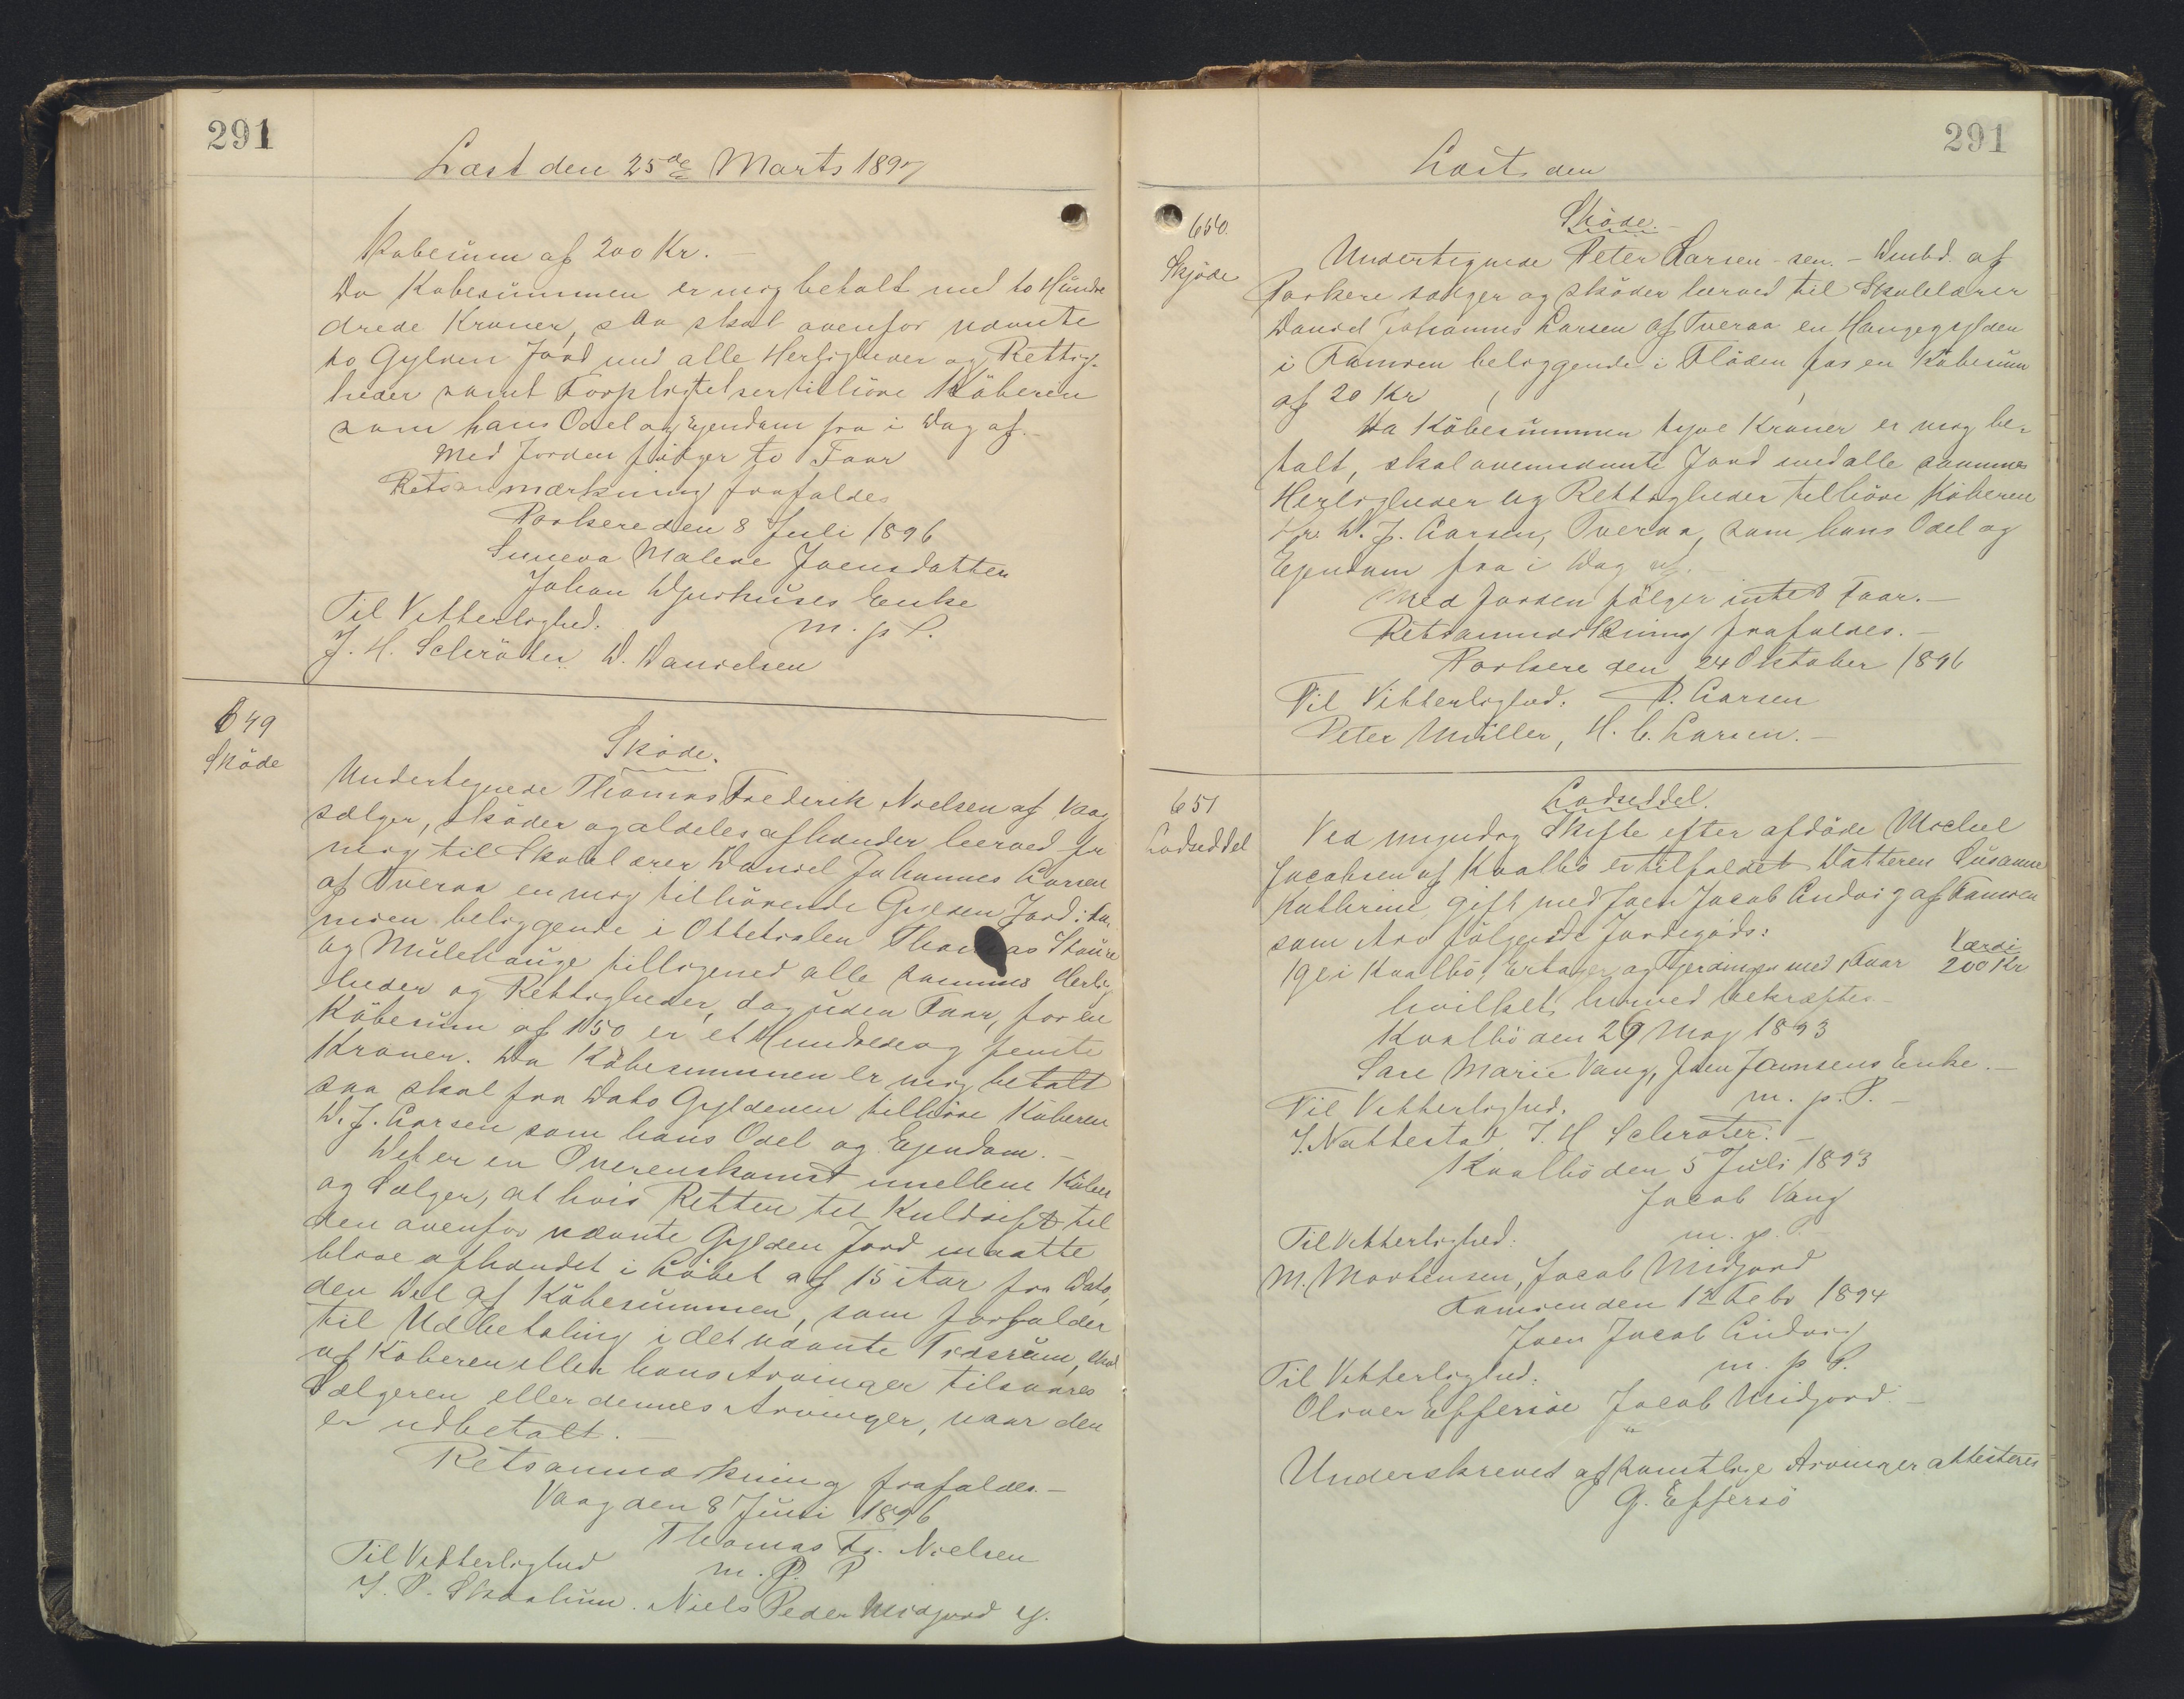 291
Læst den 25de Marts 1897
Købesum af 200 Kr. –
Da Købesummen er mig betalt med to Hundre
drede Kroner, saa skal ovenfor nævnte
to Gylden Jord med alle Herligheder og Rettig-
heder samt Forpligtelser tilhöre Köberen
som hans Odel og Ejendom fra i Dag af. –
Med Jorden fölger to Faar
Retsanmærkning frafaldes
Porkere den 8 Juli 1896
Suneva Malene Joensdatter
Johan Djurhuses Enke
Til Vitterlighed: m. p. P.
J. H. Schröter D. Danielsen
649
Sköde
Sköde.
Undertegnede Thomas Frederik Nielsen af Vaag
sælger, sköder og aldeles afhænder herved fra
mig til Skolelærer Daniel Johannes Larsen
af Tveraa en mig tilhörende Gylden Jord i Fa-
mien beliggende i Ottetialen Thomas Stoure
og Mülehauge tilligemed alle sammes Herlig-
heder og Rettigheder, dog uden Faar, for en
Köbesum af 150 er et Hundrede og femti
Kroner. Da Köbesummen er mig betalt
saa skal fra Dato Gyldenen tilhöre Köberen
D. J. Larsen som hans Odel og Ejendom. –
Det er en Overenskomst mellem Köber
og Sælger, at hvis Retten til Kuldrift til
den ovenfor nævnte Gylden Jord maatte
blive afhændet i Löbet af 15 Aar fra Dato,
den Del af Köbesummen, som forfalder
til Udbetaling i det nævnte Tidsrum,
af Köberen eller hans Arvinger tilsvares
Sælgeren eller dennes Arvinger, naar den
er udbetalt. –
Retsanmærkning frafaldes. –
Vaag den 8 Juni 1896
Thomas Fr. Nielsen
Til Vitterlighed m. P. P
J. P. Skaalum. Niels Peder Midjord
291
Læst den
650.
Skjöde
Sköde. –
Undertegnede Peter Larsen sen. – Dmbd. af
Porkere sælger og sköder herved til Skolelærer
Daniel Johannes Larsen af Tveraa en Haugegylden
i Famien beliggende i Flöden for en Köbesum
af 20 Kr
Da Köbesummen tyve Kroner er mig be-
talt, skal ovennævnte Jord med alle sammes
Herligheder og Rettigheder tilhöre Köberen
Hr. D. J. Larsen, Tveraa, som hans Odel og
Ejendom fra i Dag af.
Med Jorden fölger intet Faar. –
Retsanmærkning frafaldes. –
Porkere den 24 Oktober 1896
Til Vitterlighed. P. Larsen
Peter Müller, H. C. Larsen. –
651
Lodseddel
Lodseddel.
Ved myndig Skifte efter afdöde Michel
Jacobsen af Kvalbö er tilfaldet Datteren Susanne
Kathrine gift med Joen Jacob Lindvig af Famien
som Arv fölgende Jordegods:
1 gl i Kvalbö, med 1 Faar Værdi 200 Kr
hvilket herved bekræftes –
Kvalbö den 29 Maj 1893
Sare Marie Vang, Joen Joensens Enke. –
Til Vitterlighed, m. p. P. –
J. Nattestad J. H Schröter. –
Kvalbö den 5 Juli 1893
Jacob Vang
Til Vitterlighed. m. p. P.
M. Mortensen, Jacob Midjord
Famien den 12 Febr 1894
Joen Jacob Lindvig
Til Vitterlighed: m. p P.
Oliver Effersöe Jacob Midjord –
Underskrevet af samtlige Arvinger attesteres
G. Effersö